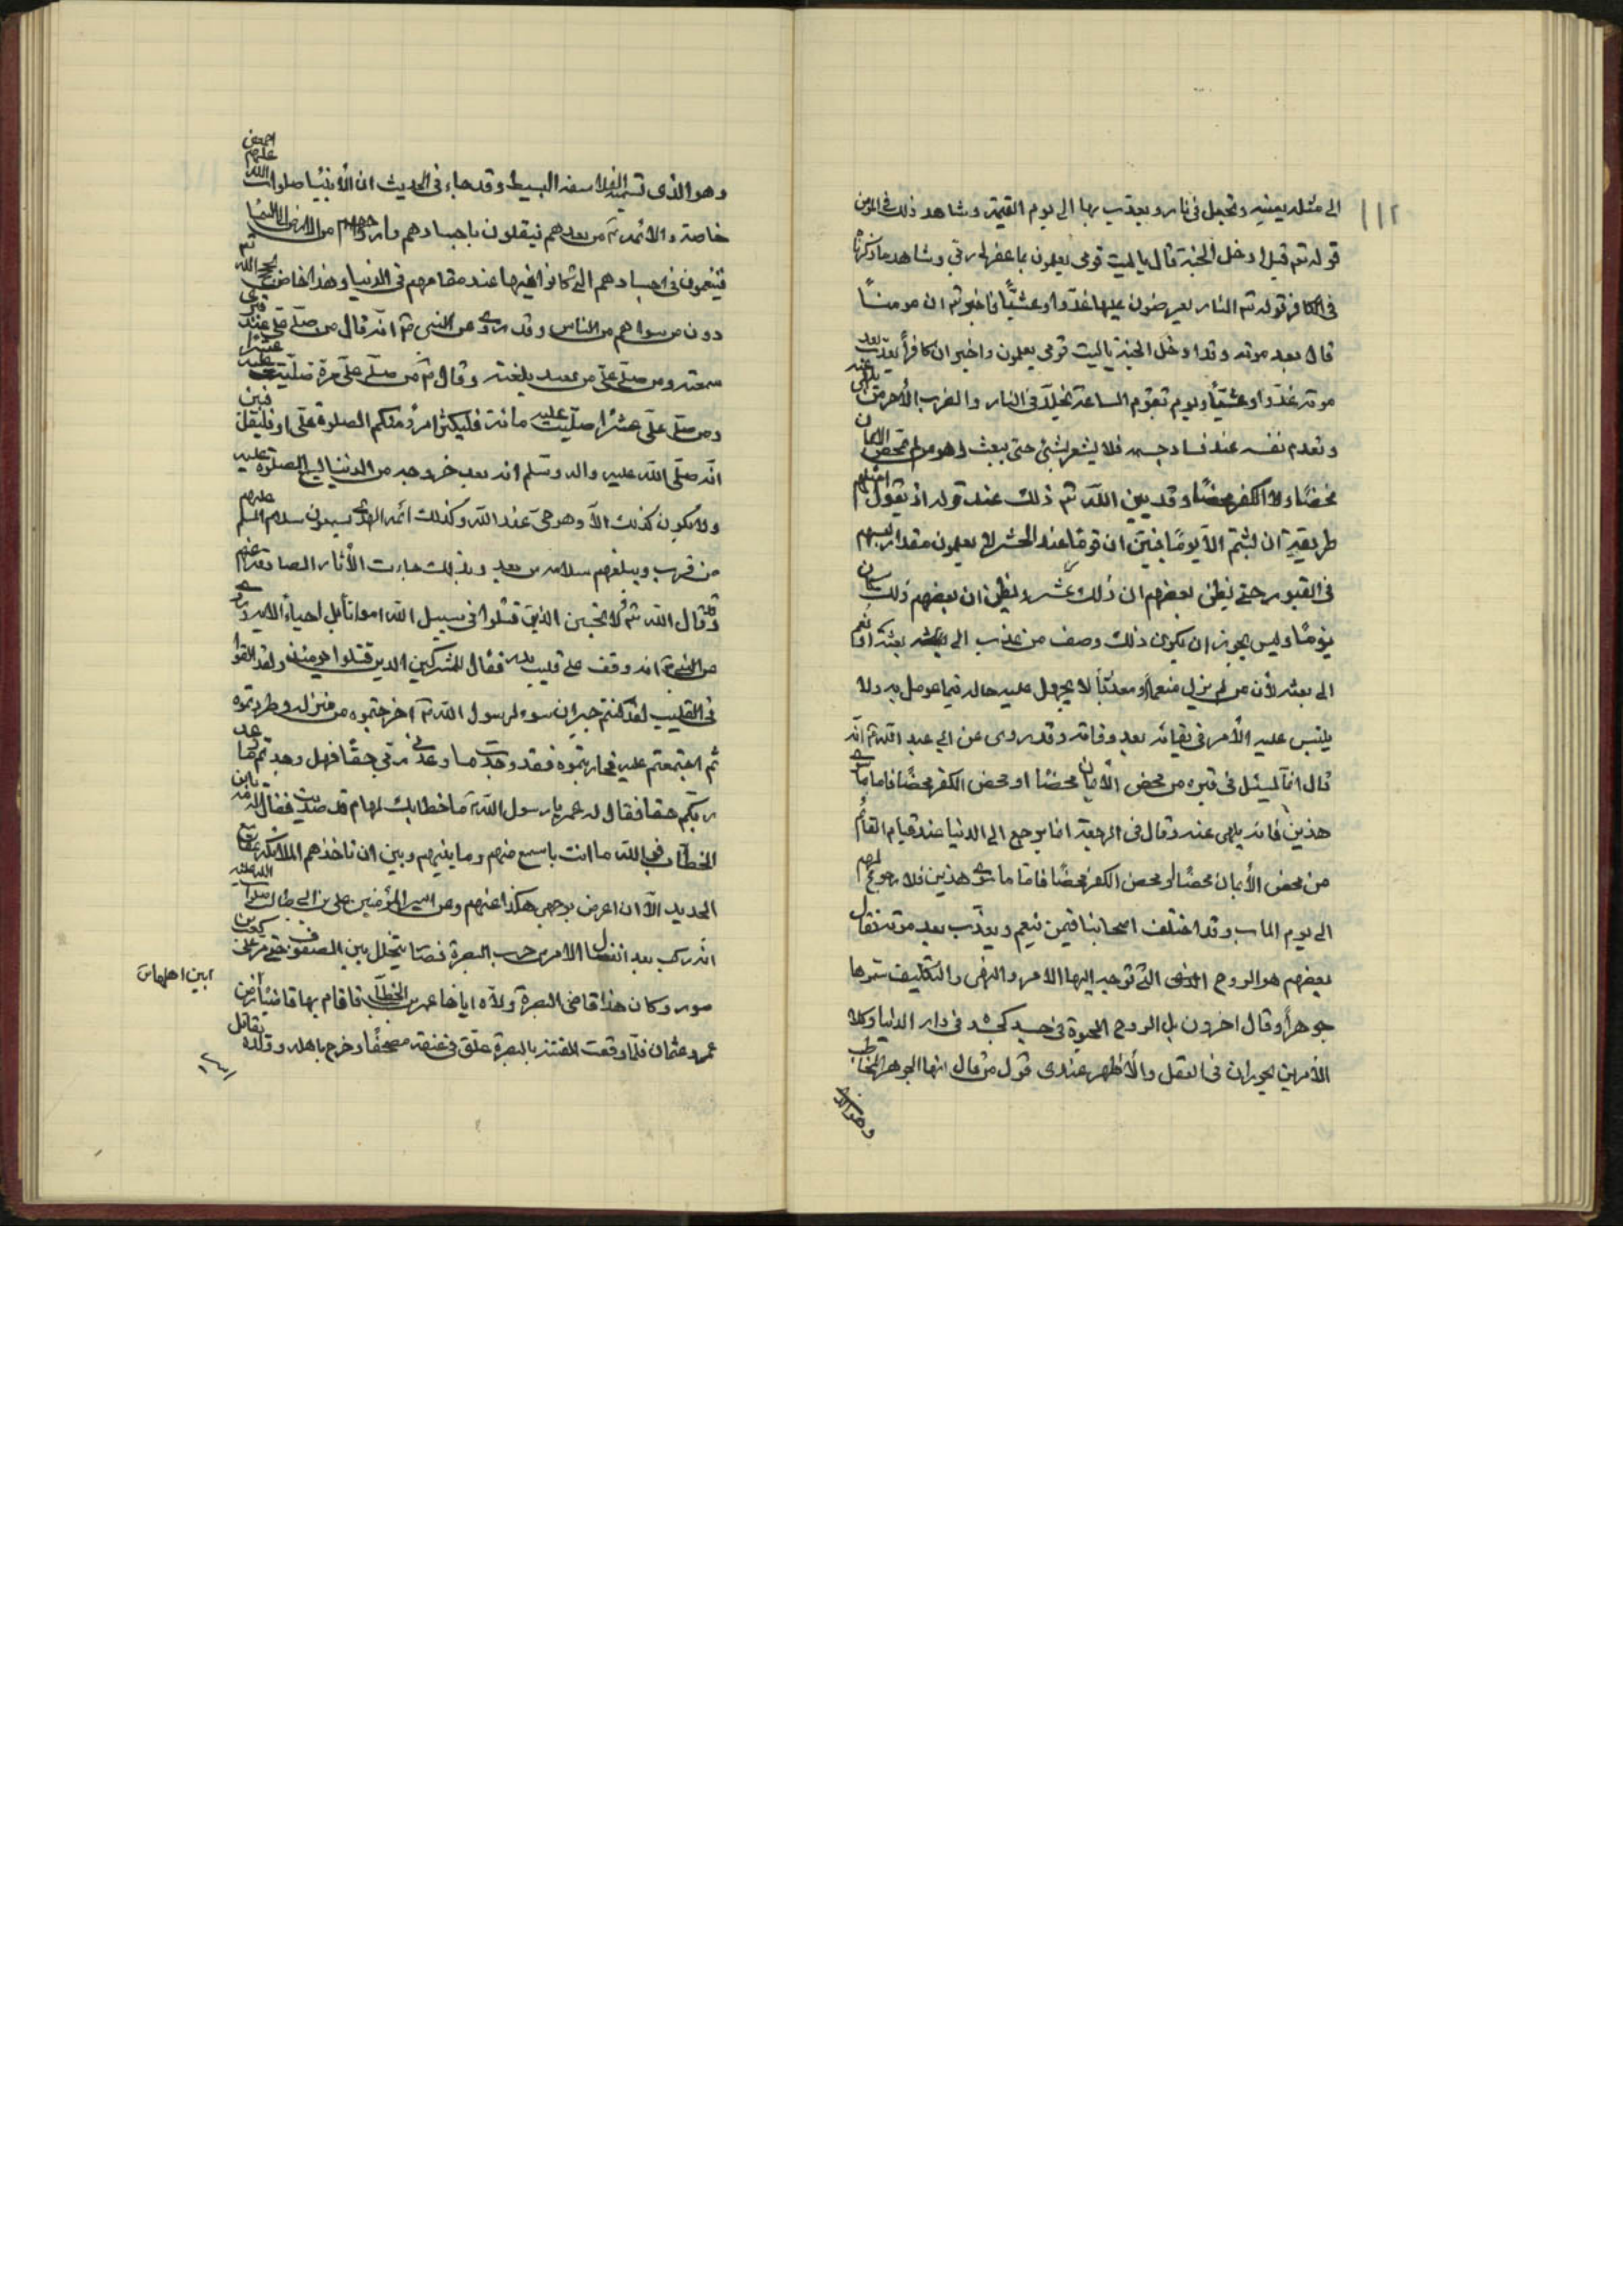 ١١٢
الى مثله بعينه وتجعل فى نار ويعذب بها الى يوم القيمة وشاهد ذلك فى المؤمن
قوله تعم قيل ادخل الجنة قال يا ليت قومى يعلمون بما غفر لى ربى وشاهد ما ذكرناه
فى الكافر قوله تعم النار يعرضون عليها غدّوا وعشيّا فاخبر تعم ان مومنا
قال بعد موته وقد ادخل الجنة ياليت قومى يعلمون واخبر ان كافرا يعذب بعد
موته غدّوا وعشيّا ويوم تقوم الساعة يخلّد فى النار والضرب الأخر من يلهى عنه
وتعدم نفسه عند فساد جسمه فلا يشعر بشئ حتى يبعث وهو من لم يمحض الايمان
محضًا ولا الكفر محضًا وقد بين الله تعم ذلك عند قوله اذ يقول امثلهم
طريقة ان لبثتم الّا يومًا فبيّن ان قومًا عند الحشر لا يعلمون مقدار لبثهم
فى القبور حتى يظن بعضهم ان ذلك عشر ويظن ان بعضهم ذلك كان
يومًا وليس يجوز ان يكون ذلك وصف من عذب الى بعثه او نعم
الى بعثه لأن من لم يزل منعما او معذبًا لا يجهل عليه حاله فيما عومل به ولا
يلتبس عليه الأمر فى بقائه بعد وفاته وقد روى عن ابى عبد الله ع انه
قال انما يسئل فى قبره من محض الأيمان محضًا او محض الكفر محضًا فاما ما سوى
هذين فانه يلهى عنه وقال فى الرجعة انما يرجع الى الدنيا عند قيام القائم
من محض الأيمان محضًا او محض الكفر محضًا فاما ما سوى هذين فلا رجوع لهم
الى يوم المآب وقد اختلف اصحابنا فيمن ينعم ويعذب بعد موته فقال
بعضهم هو الروح التى توجه اليها الامر والنهى والتكليف سموها
جوهرا وقال اخرون بل الروح الحيوة فى جسد كجسده فى دار الدنيا وكلا
الأمرين يجوزان فى العقل والأظهر عندى قول من قال انها الجوهر المخاطب
وهو الذى
وهو الذى تسميه الفلاسفه البسيط وقد جاء فى الحديث ان الأنبيا صلوات الله عليهم اجمعين
خاصة والائمة ع من بعدهم ينقلون باجسادهم وارواحهم من الارض الى السماء
فيتنعمون فى اجسادهم التى كانوا فيها عند مقامهم فى الدنيا وهذا خاص لحجج الله تعم
دون من سواهم من الناس وقد روى عن النبى ص انه قال من صلى على عند قبرى
سمعته ومن صلى على من بعيد بلغته وقال ص من صلى على مرة صليت عليه عشرا
ومن صلى على عشرا صليت عليه مائة فليكثر امرؤ منكم الصلوة على او فليقل فبين
انه صلى الله عليه واله وسلم انه بعد خروجه من الدنيا يسمع الصلوة عليه
ولا يكون كذلك الّا وهو حىّ عند الله وكذلك ائمة الهدى يسمعون سلام المسلم عليهم
من قرب ويبلغهم سلامه من بعد وبذلك جاءت الأثار الصادقة عنهم
وقد قال الله تعم ولا تحسبن الذين قتلوا فى سبيل الله امواتا بل احياء الاية وروى
عن النبى ص انه وقف على قليب بدر فقال للمشركين الذين قتلوا يومئذ وقد القوا
فى القليب لقد كنتم جيران سوء لرسول الله ص اخرجتموه من منزله وطردتموه
ثم اجتمعتم عليه فحاربتموه فقد وجدت ما وعدنى ربى حقا فهل وجدتم ما وعد
ربكم حقا فقال له عمر يا رسول الله ص ما خطابك لهام قد صديت فقال له مه يا بن
الخطاب فوالله ما انت باسمع منهم وما بينهم وبين ان تاخذهم الملائكة بمقامع
الحديد الّا ان اعرض بوجهى هكذا عنهم وعن امير المؤمنين على بن ابى طالب صلوات الله عليه
انه ركب بعد انفصال الامر من حرب البصرة فصار يتخلل بين الصفوف حتى مر على كعب بن
سور وكان هذا قاضى البصرة ولّاه اياها عمر بن الخطاب فاقام بها قاضيًا بين اهلها من
بين اهلها من
عمر وعثمان فلما وقعت الفتنة بالبصرة علق فى عنقه مصحفًا وخرج باهله وولده يقاتل